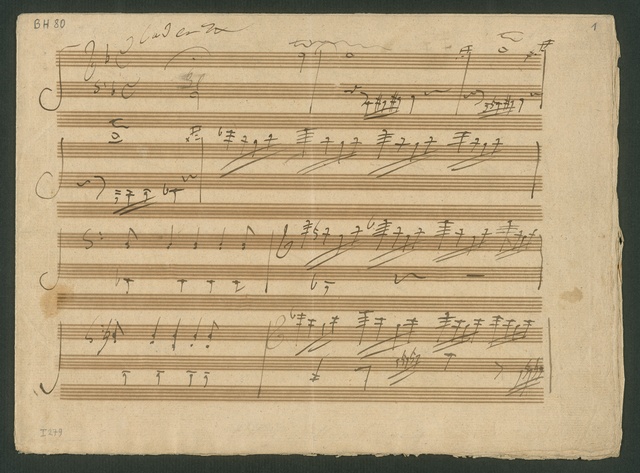 BH 80
1
Cadenza
I 279